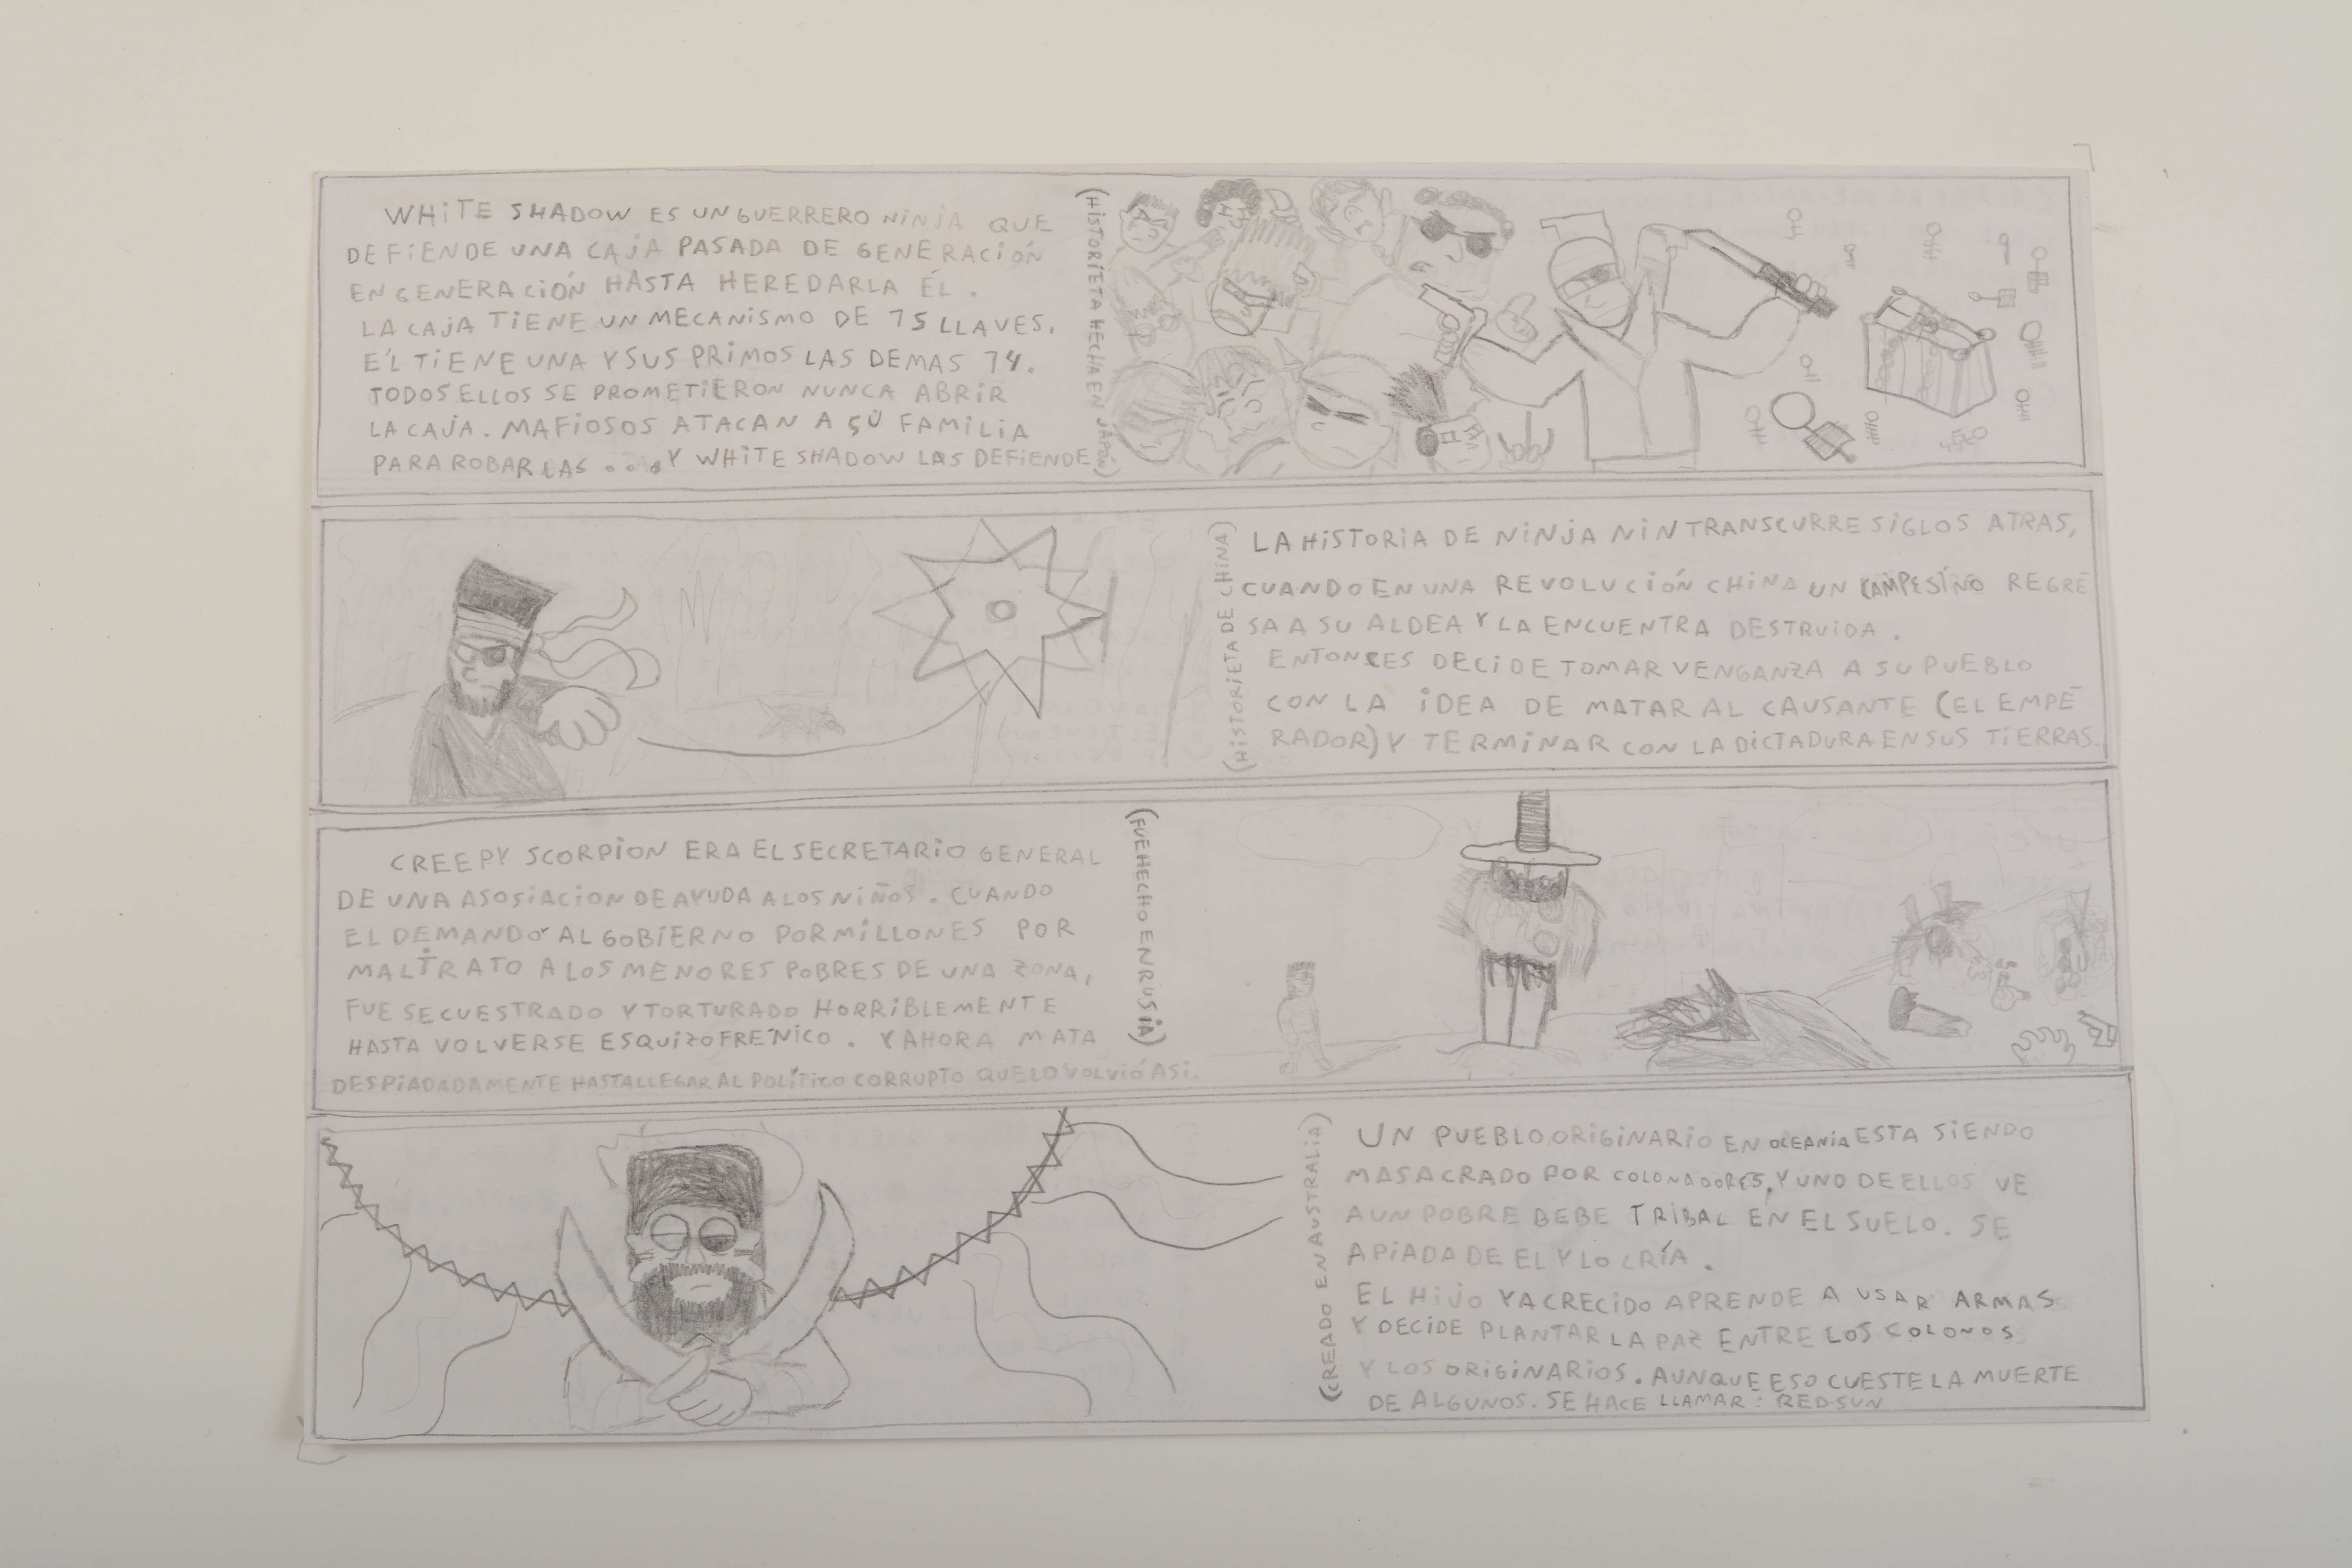 WHITE SHADOW ES UN GUERRERO NINJA QUE
DEFIENDE UNA CAJA PASADA DE GENERACIÓN
EN GENERACIÓN HASTA HEREDARLA ÉL.
LA CAJA TIENE UN MECANISMO DE 75 LLAVES.
ÉL TIENE UNA Y SUS PRIMOS LAS DEMAS 74.
TODOS ELLOS SE PROMETIERON NUNCA ABRIR
LA CAJA. MAFIOSOS ATACAN A SU FAMILIA
PARA ROBARLAS ... Y WHITE SHADOW LAS DEFIENDE
(HISTORIETA HECHA EN JAPÓN)
(HISTORIETA DE CHINA)
LA HISTORIA DE NINJA NIN TRANSCURRE SIGLOS ATRAS,
CUANDO EN UNA REVOLUCIÓN CHINA UN CAMPESINO REGRE
SA A SU ALDEA Y LA ENCUENTRA DESTRUIDA.
ENTONCES DECIDE TOMAR VENGANZA A SU PUEBLO
CON LA IDEA DE MATAR AL CAUSANTE (EL EMPE
RADOR) Y TERMINAR CON LA DICTADURA EN SUS TIERRAS.
CREEPY SCORPION ERA EL SECRETARIO GENERAL
DE UNA ASOSIACION DE AYUDA A LOS NIÑOS. CUANDO
EL DEMANDO AL GOBIERNO POR MILLONES POR
MALTRATO A LOS MENORES POBRES DE UNA ZONA,
FUE SECUESTRADO Y TORTURADO HORRIBLEMENTE
HASTA VOLVERSE ESQUIZOFRÉNICO. Y AHORA MATA
DESPIADADAMENTE HASTA LLEGAR AL POLÍTICO CORRUPTO QUE LO VOLVIÓ ASI.
(FUE HECHO EN RUSIA)
(CREADO EN AUSTRALIA)
UN PUEBLO ORIGINARIO EN OCEANIA ESTA SIENDO
MASACRADO POR COLONADORES, Y UNO DE ELLOS VE
A UN POBRE BEBE TRIBAL EN EL SUELO. SE
APIADA DE EL Y LO CRÍA.
EL HIJO YA CRECIDO APRENDE A USAR ARMAS
Y DECIDE PLANTAR LA PAZ ENTRE LOS COLONOS
Y LOS ORIGINARIOS. AUNQUE ESO CUESTE LA MUERTE
DE ALGUNOS. SE HACE LLAMAR: RED SUN